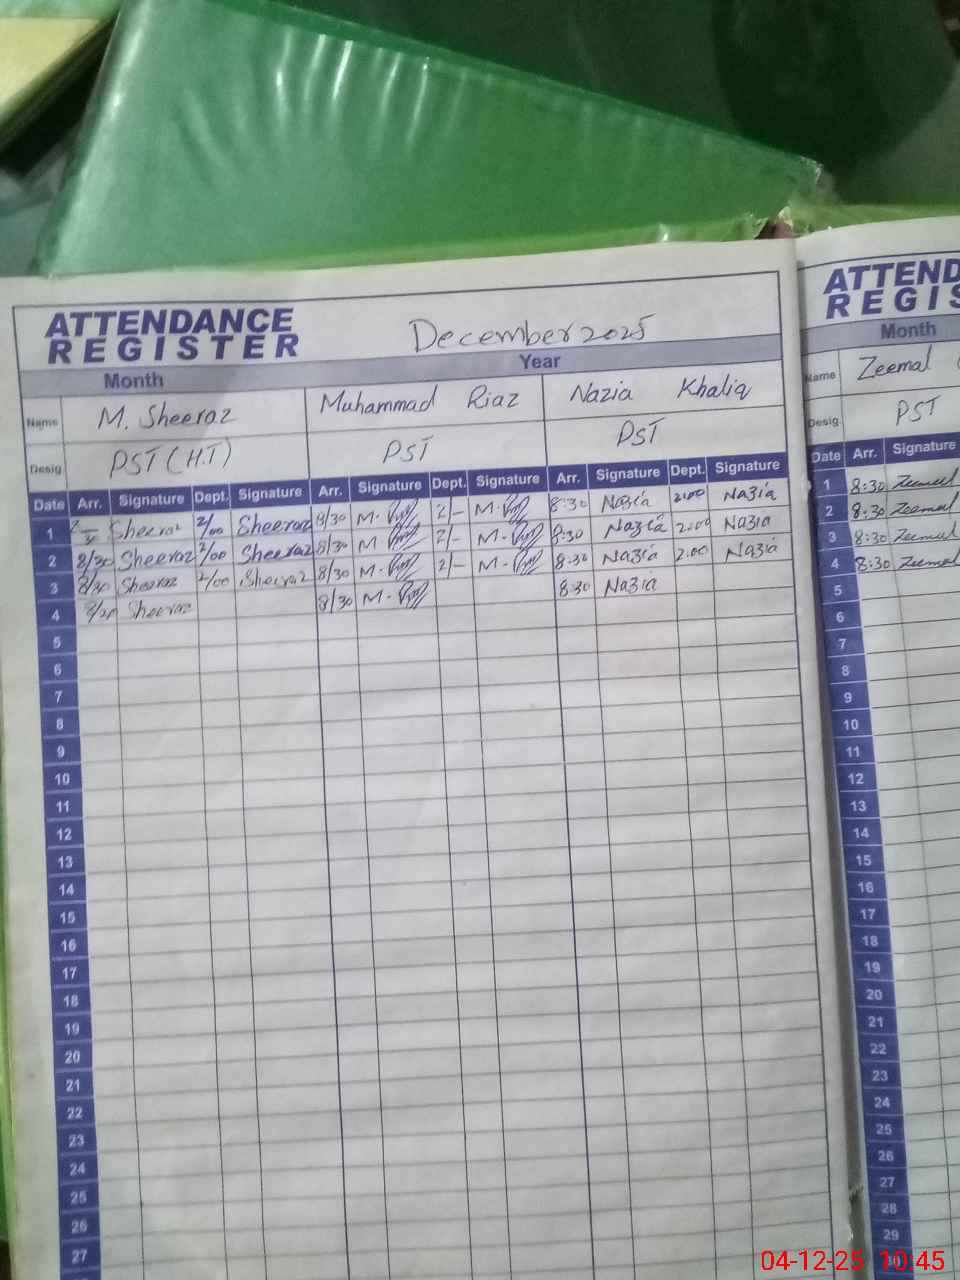 ATTENDANCE
REGISTER
December 2025
Month Year
Name M. Sheeraz Muhammad Riaz Nazia Khaliq
Desig PST (H.T) PST PST
Date Arr. Signature Dept. Signature Arr. Signature Dept. Signature Arr. Signature Dept. Signature
1 Sheeraz 2/00 Sheeraz 8/30 M. 2/- M. 8:30 Nazia 2:00 Nazia
2 8/30 Sheeraz 2/00 Sheeraz 8/30 M 2/- M. 8:30 Nazia 2:00 Nazia
3 8/30 Sheeraz 2/00 Sheeraz 8/30 M. 2/- M. 8:30 Nazia 2:00 Nazia
4 Sheeraz 8/30 M. 8:30 Nazia
5
6
7
8
9
10
11
12
13
14
15
16
17
18
19
20
21
22
23
24
25
26
27
ATTEND
REGIS
Month
Name Zeemal
Desig PST
Date Arr. Signature
1 8:30 Zeemal
2 8:30 Zeemal
3 8:30 Zeemal
4 8:30 Zeemal
5
6
7
8
9
10
11
12
13
14
15
16
17
18
19
20
21
22
23
24
25
26
27
28
29
04-12-25 10:45